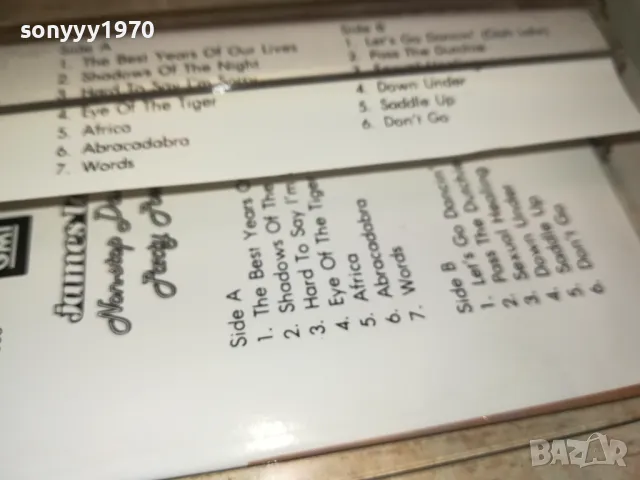 sonyyy1970
Side A
1. The Best Years Of Our Lives
2. Shadows Of The Night
3. Hard To Say I'm Sorry
4. Eye Of The Tiger
5. Africa
6. Abracadabra
7. Words
Side B
1. Let's Go Dancin'
2. Pass The Dutchie
3. Sexual Healing
4. Down Under
5. Saddle Up
6. Don't Go
James
Nonstop
Party
Side A
1. The Best Years O
2. Shadows Of The
3. Hard To Say I'm
4. Eye Of The Tiger
5. Africa
6. Abracadabra
7. Words
Side B
1. Let's Go Dancin'
2. Pass The Dutchie
3. Sexual Healing
4. Down Under
5. Saddle Up
6. Don't Go
BAZAR
bg